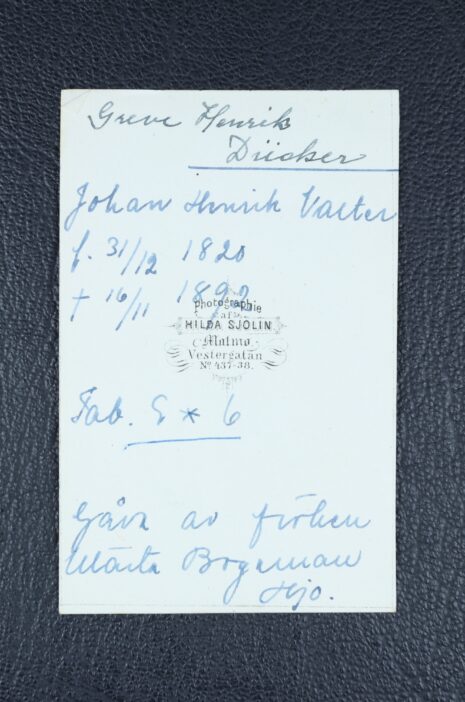 Greve Henrik
Dücker
Johan Henrik Valter
f. 31/12 1820
† 16/11 1892
photographie
af
HILDA SJÖLIN
Malmö
Vestergatan
No 437-38.
Tab. 5 * 6
Gåva av fröken
Märta Bogeman
Hjo.